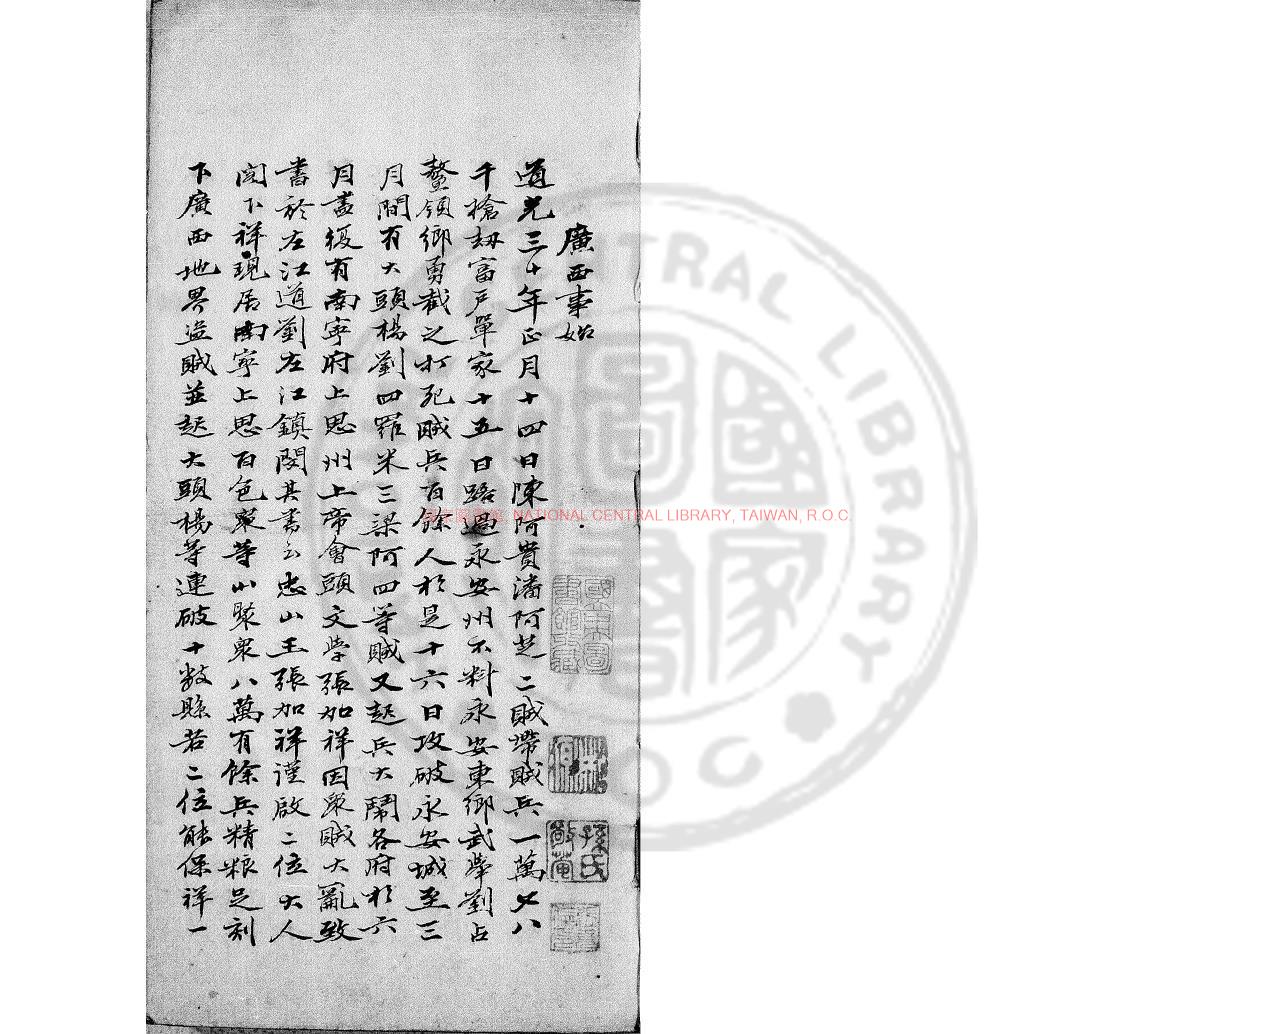 廣西事始
道光三十年正月十四日陳阿貴潘阿芝二賊帶賊兵一萬七八
千搶劫富戶單家十五日路過永安州不料永安東鄉武舉劉占
鰲領鄉勇截之打死賊兵百餘人於是十六日攻破永安城至三
月間有大頭楊劉四羅米三梁阿四等賊又起兵大鬧各府於六
月盡復有南寧府上思州上帝會頭文學張加祥因眾賊大亂致
書於左江道劉左江鎮閔其書云忠山王張加祥謹啟二位大人
閣下祥現居南寧上思百色東等山聚眾八萬有餘兵精粮足刻
下廣西地界盜賊並起大頭楊等連破十數縣若二位能保祥一
國家圖書館 NATIONAL CENTRAL LIBRARY, TAIWAN, R.O.C.
CENTRAL LIBRARY
R O C